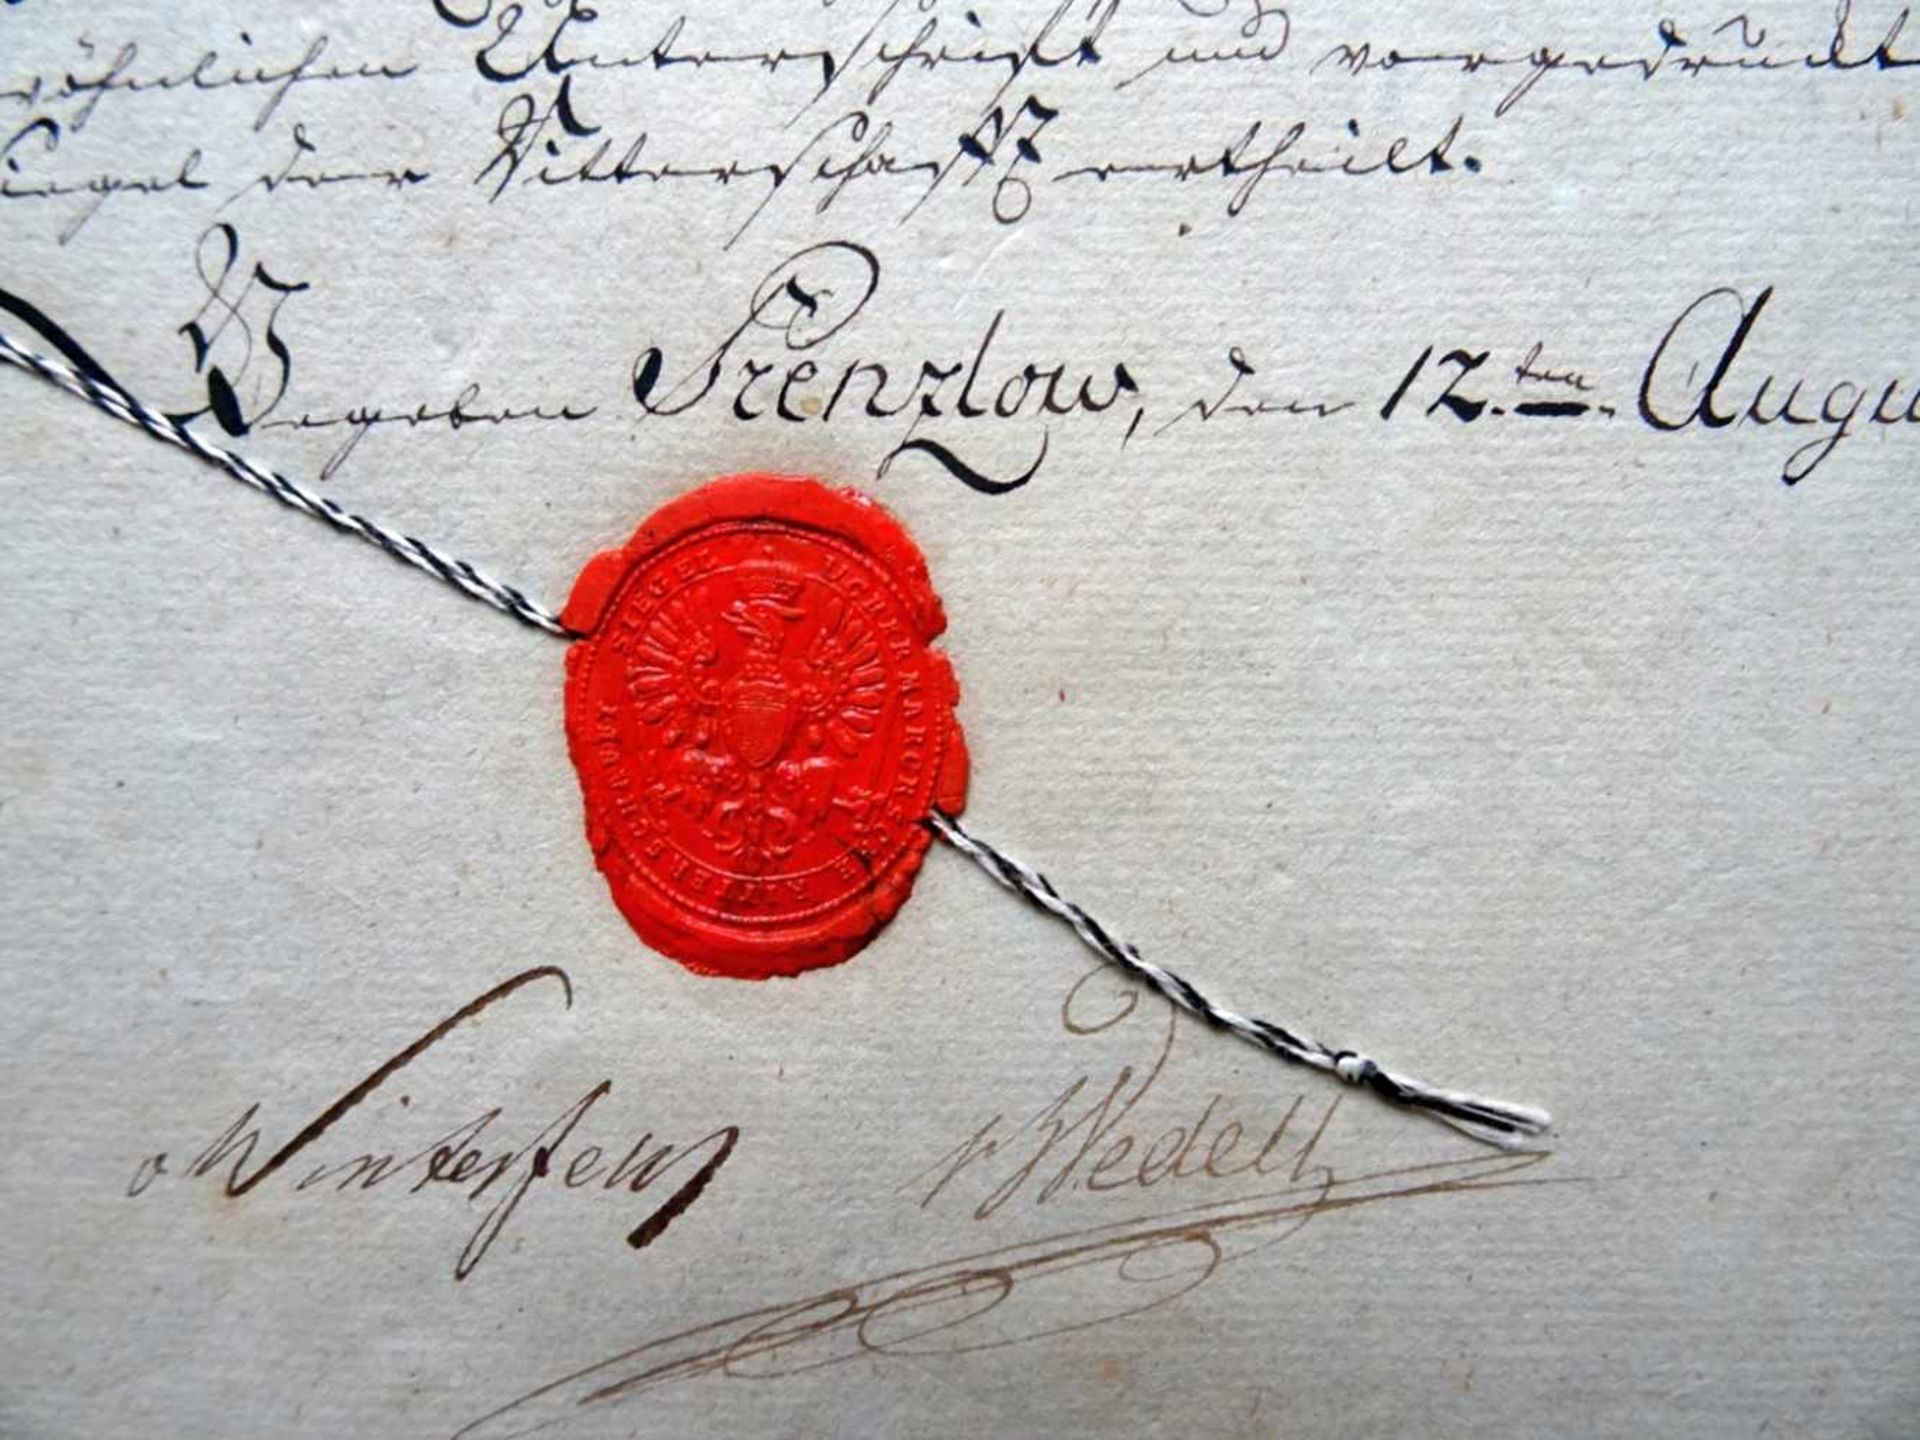 wöhnlichen Unterschrift und vorgedrückt
Siegel der Ritterschafft ertheilt.
Gegeben Prenzlow, den 12.ten Augu
SIEGEL UCKERMAERCKSCHE RITTERSCHAFT
v Winterfeld v Wedell